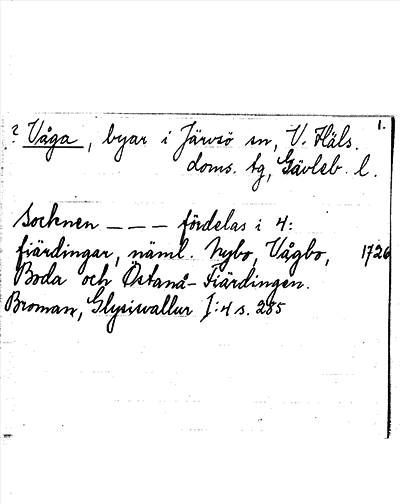 1.
? Våga, byar i Järvsö sn, V. Häls.
doms. tg, Gävleb. l.
Socknen - - - fördelas i 4:
fiärdingar, näml. Nybo, Vågbo, 1726
Boda och Östanå-Fiärdingen.
Broman, Glysisvallur I:4 s. 285